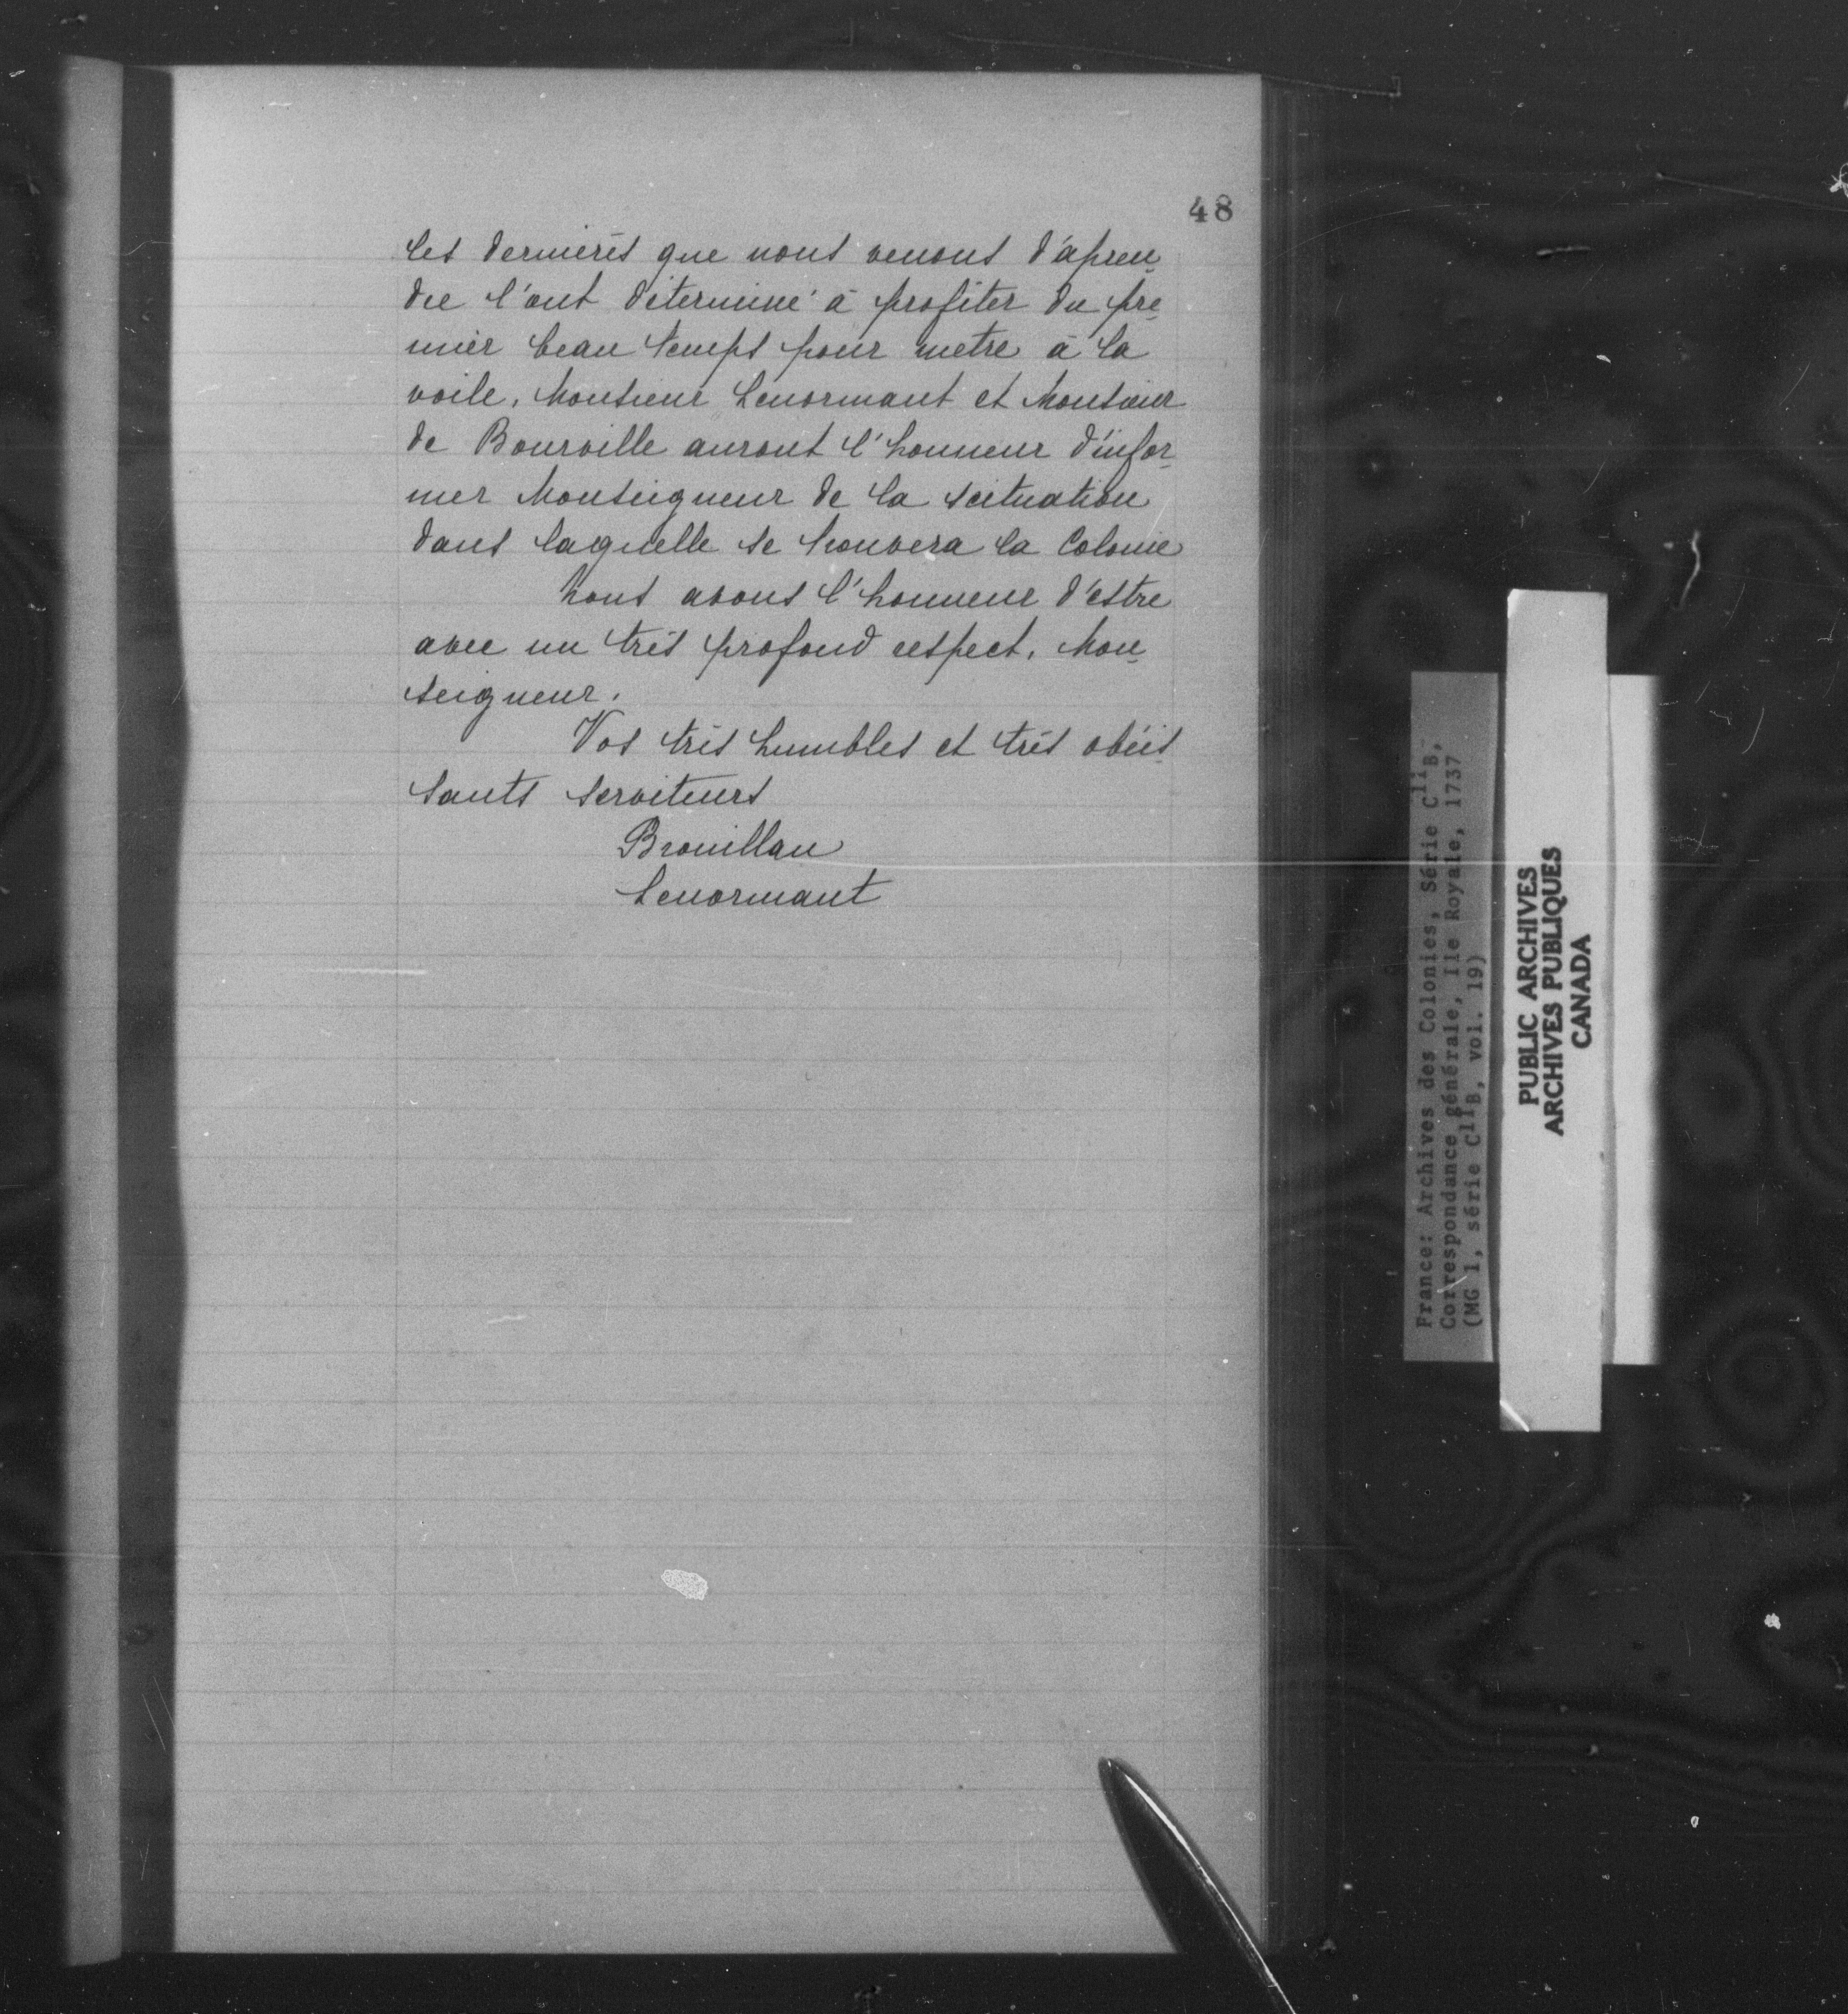 48
les dernierès que nous venons d'apren-
dre l'ont déterminé à profiter du pre-
mier beau temps pour metre à la
voile, Monsieur Lenormant et Monsieur
de Bourville auront l'honneur d'infor-
mer Monseigneur de la scituation
dans laquelle se trouvera la Colonie
Nous avons l'honneur d'estre
avec un très profond respect, Mon-
seigneur.
Vos très humbles et très obéis-
sants serviteurs
Brouillan
Lenormant
France: Archives des Colonies, Série C11B,
Correspondance générale, Ile Royale, 1737
(MG 1, série C11B, vol. 19)
PUBLIC ARCHIVES
ARCHIVES PUBLIQUES
CANADA